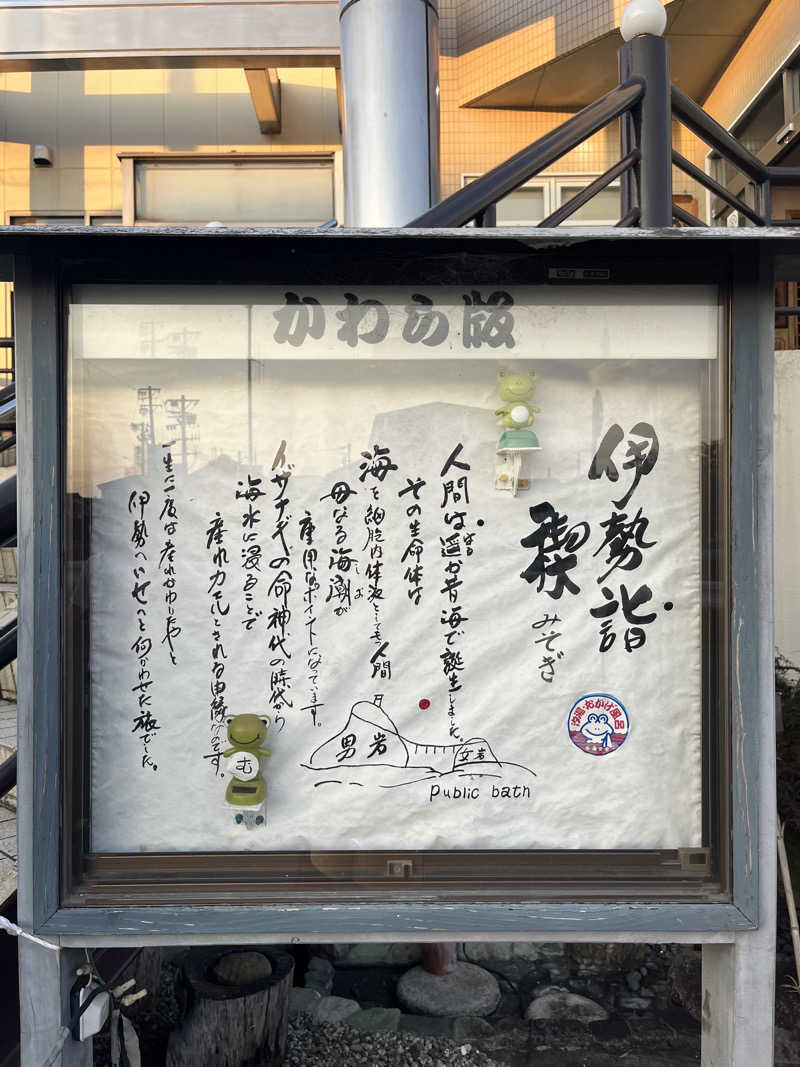 かわら版
伊勢詣
禊
みそぎ
人間は遥か昔海で誕生しました。
はる
その生命体は
海を細胞内体液としてもつ人間
母なる海潮が
しお
重用なポイントになっています。
イザナギの命神代の時代から
海水に浸ることで
産れカエルとされる由縁の
です。
一生に一度は産れかわりたやと
伊勢へいせへと向かわせた旅でした。
男岩
女岩
public bath
汐湯・おかげ風呂
む